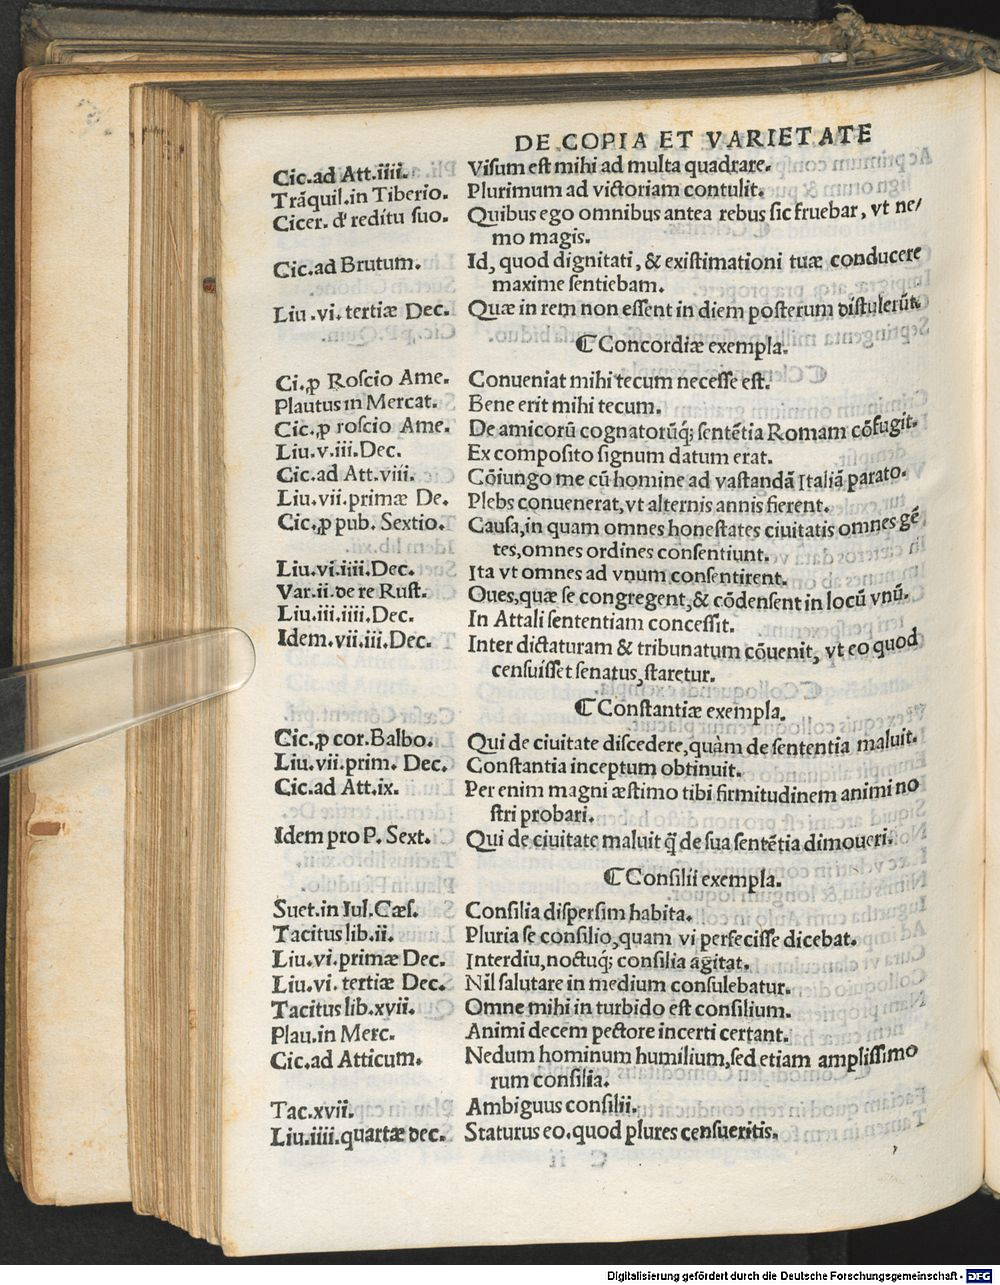 DE COPIA ET VARIETATE
Cic.ad Att.iiii. Visum est mihi ad multa quadrare.
Trãquil.in Tiberio. Plurimum ad victoriam contulit.
Cicer. d' reditu suo. Quibus ego omnibus antea rebus sic fruebar, vt ne/
mo magis.
Cic.ad Brutum. Id, quod dignitati, & existimationi tuæ conducere
maxime sentiebam.
Liu.vi.tertiæ Dec. Quæ in rem non essent in diem posterum distulerũt.
❡ Concordiæ exempla.
Ci.ꝓ Roscio Ame. Conueniat mihi tecum necesse est.
Plautus in Mercat. Bene erit mihi tecum.
Cic.ꝓ roscio Ame. De amicorũ cognatorũq; sentẽtia Romam cõfugit.
Liu.v.iii.Dec. Ex composito signum datum erat.
Cic.ad Att.viii. Cõiungo me cũ homine ad vastandã Italiã parato.
Liu.vii.primæ De. Plebs conuenerat,vt alternis annis fierent.
Cic.ꝓ pub. Sextio. Causa,in quam omnes honestates ciuitatis omnes gẽ
tes,omnes ordines consentiunt.
Liu.vi.iiii.Dec. Ita vt omnes ad vnum consentirent.
Var.ii.de re Rust. Oues,quæ se congregent,& cõdensent in locũ vnũ.
Liu.iii.iiii.Dec. In Attali sententiam concessit.
Idem.vii.iii.Dec. Inter dictaturam & tribunatum cõuenit, vt eo quod
censuisset senatus,staretur.
❡ Constantiæ exempla.
Cic.ꝓ cor.Balbo. Qui de ciuitate discedere,quàm de sententia maluit.
Liu.vii.prim. Dec. Constantia inceptum obtinuit.
Cic.ad Att.ix. Per enim magni æstimo tibi firmitudinem animi no
stri probari.
Idem pro P. Sext. Qui de ciuitate maluit q̃ de sua sentẽtia dimoueri.
❡ Consilii exempla.
Suet.in Iul.Cæs. Consilia dispersim habita.
Tacitus lib.ii. Pluria se consilio,quam vi perfecisse dicebat.
Liu.vi.primæ Dec. Interdiu,noctuq; consilia agitat.
Liu.vi. tertiæ Dec. Nil salutare in medium consulebatur.
Tacitus lib.xvii. Omne mihi in turbido est consilium.
Plau.in Merc. Animi decem pectore incerti certant.
Cic.ad Atticum. Nedum hominum humilium,sed etiam amplissimo
rum consilia.
Tac.xvii. Ambiguus consilii.
Liu.iiii.quartæ dec. Staturus eo.quod plures censueritis.
Digitalisierung gefördert durch die Deutsche Forschungsgemeinschaft - DFG